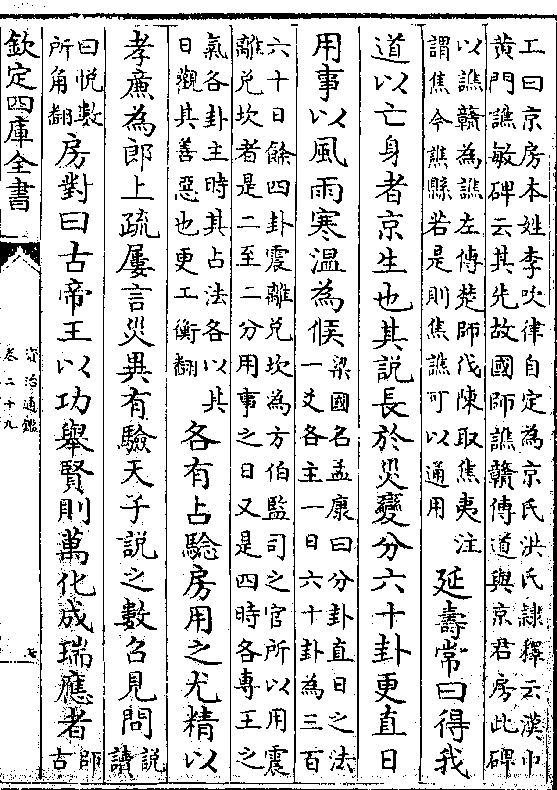 工曰京房本姓李吹律自定為京氏洪氏隸釋云漢中
黄門譙敏碑云其先故國師譙贛傳道與京君房此碑
以譙贛為譙左傳楚師伐陳取焦夷注
謂焦今譙縣若是則焦譙可以通用
延壽常曰得我
道以亡身者京生也其説長於災變分六十卦更直日
用事以風雨寒溫為候
梁國名孟康曰分卦直日之法
一爻各主一日六十卦為三百
六十日餘四卦震離兌坎為方伯監司之官所以用震
離兌坎者是二至二分用事之日又是四時各專王之
氣各卦主時其占法各以其
日觀其善惡也更工衡翻
各有占驗房用之尤精以
孝亷為郎上疏屢言災異有驗天子説之數召見問
説
讀
曰悦數
所角翻
房對曰古帝王以功舉賢則萬化成瑞應者
師
古
欽定四庫全書
資治通鑑
卷二十九
七